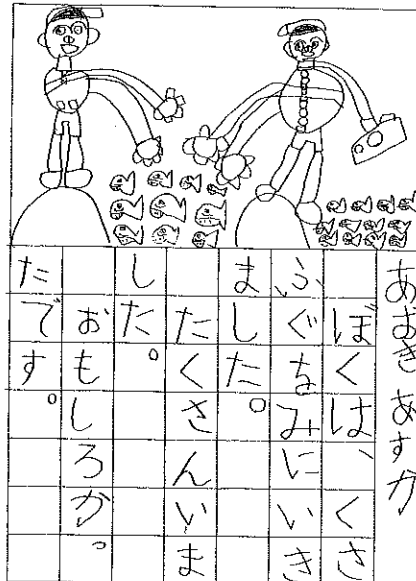 あおきあすか
ぼくは、くさ
ふぐをみにいき
ました。
たくさんいま
した。
おもしろか。
たです。